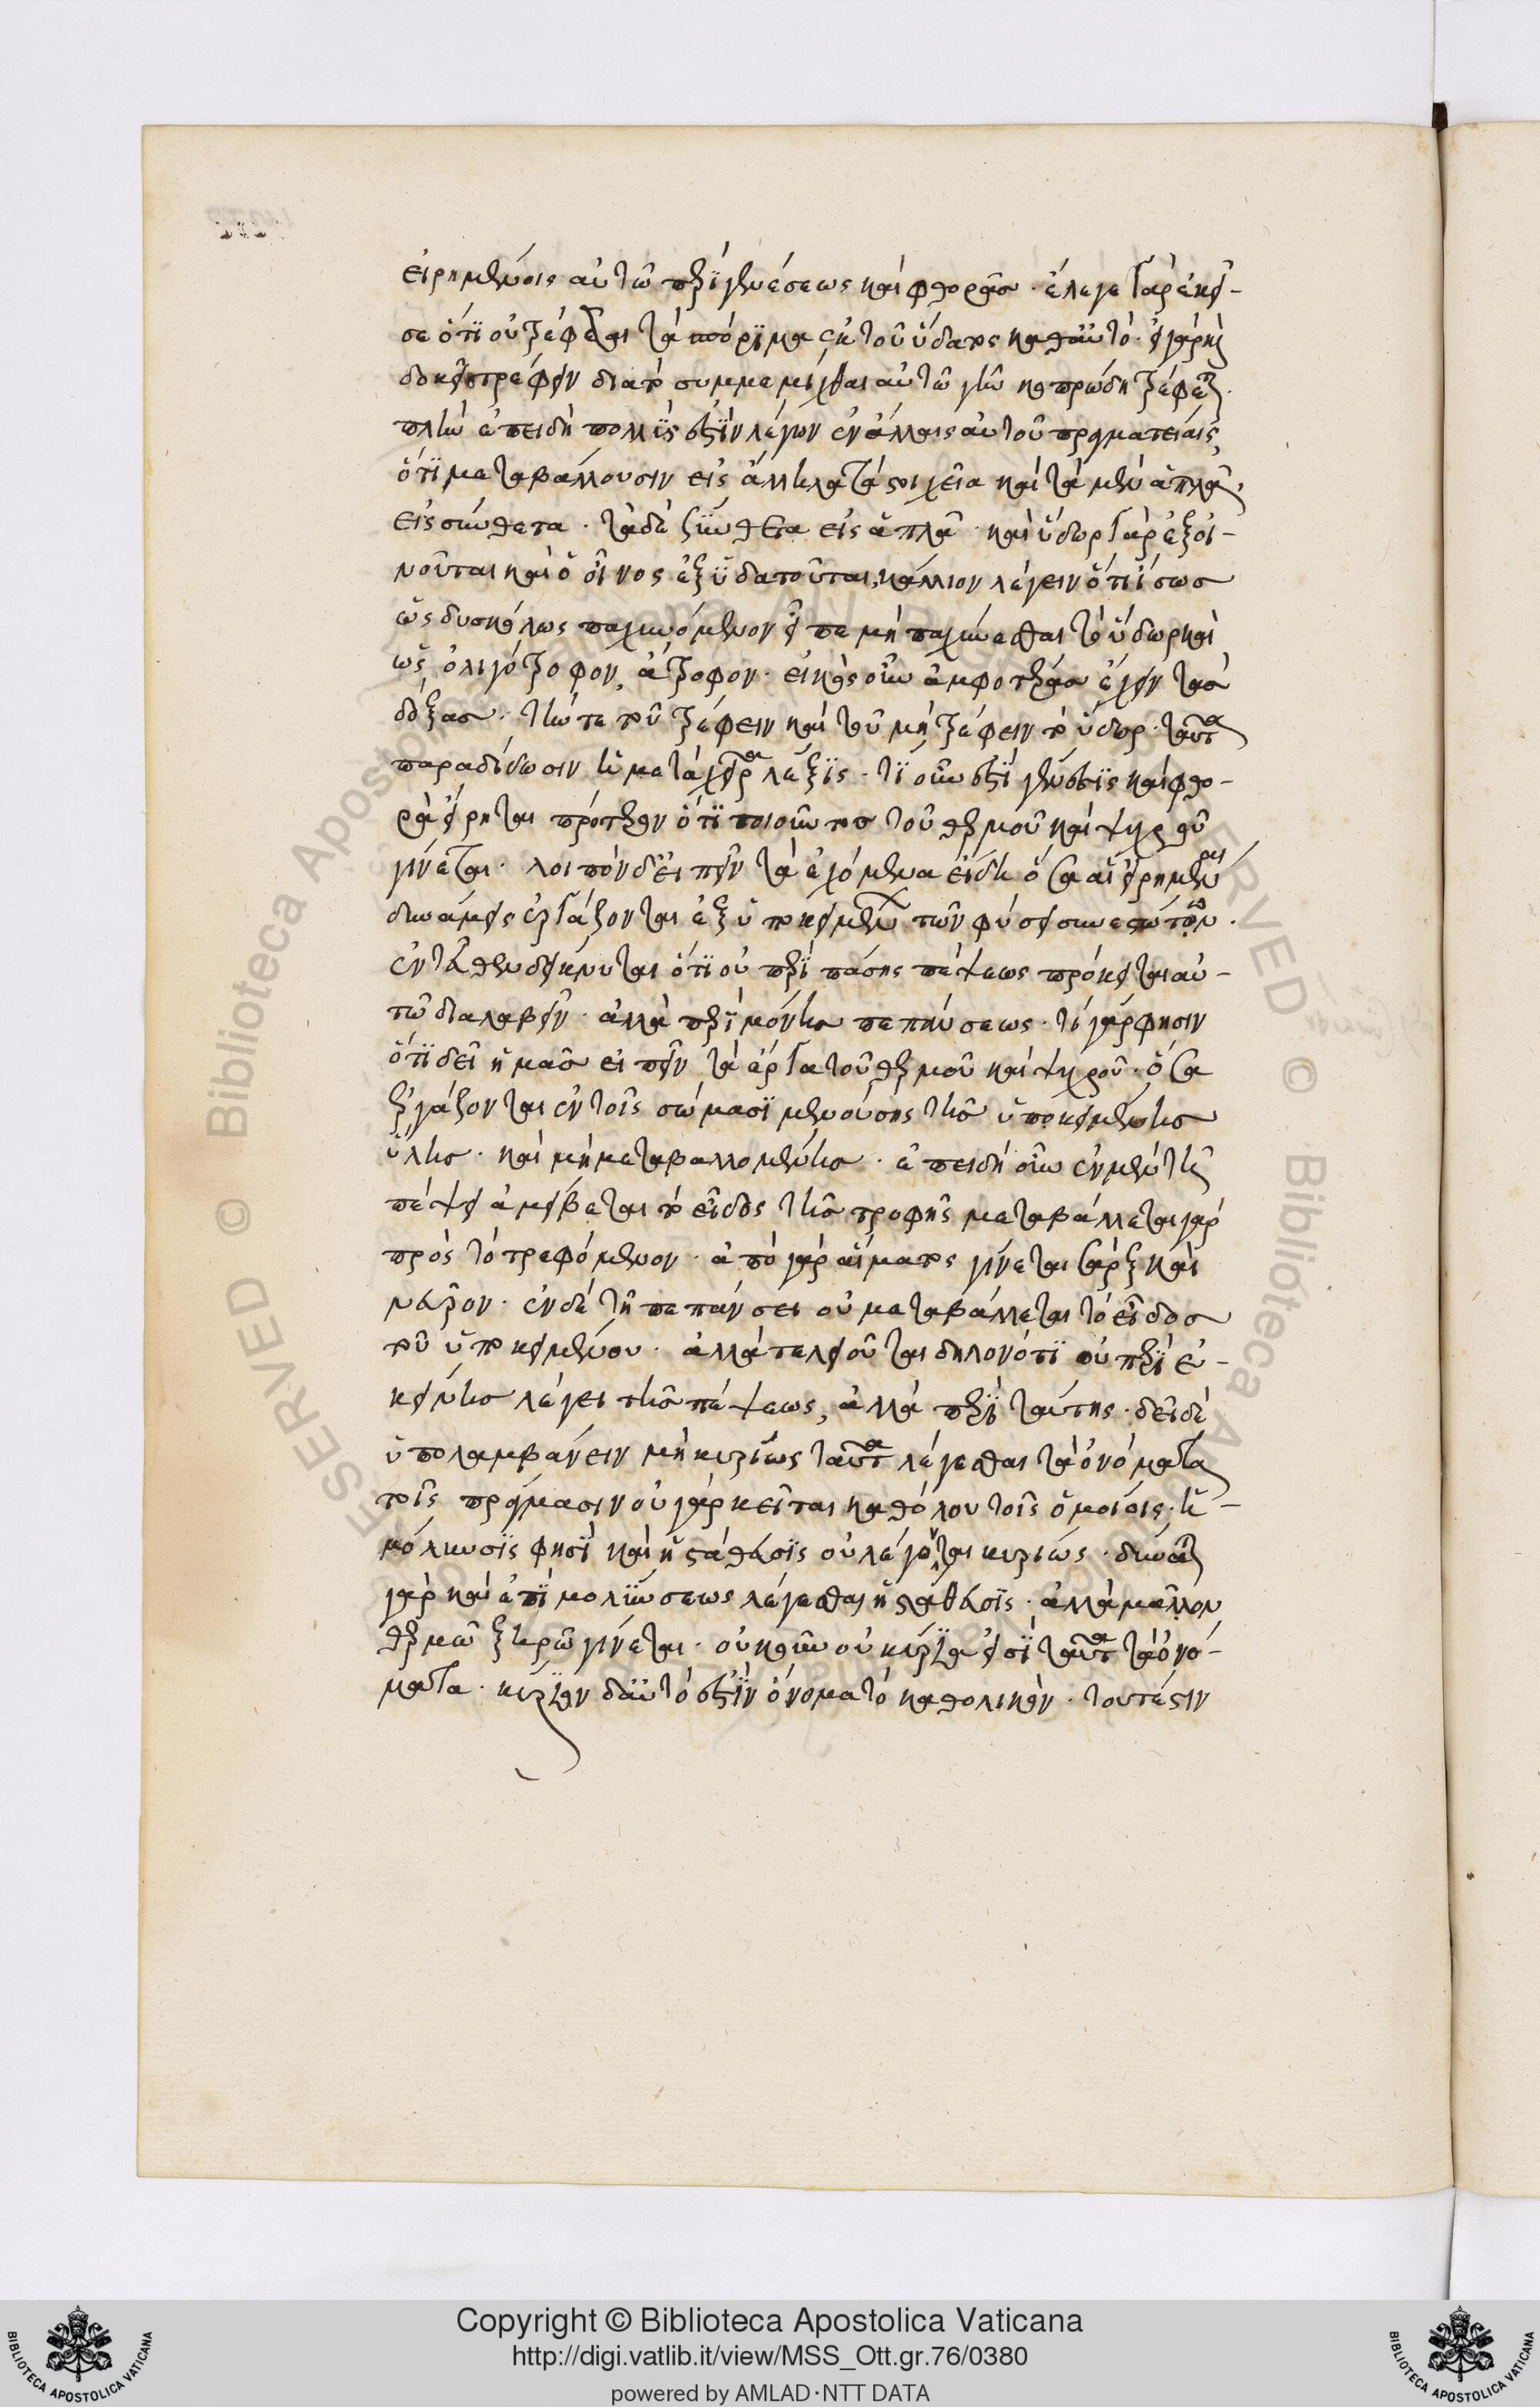 εἰρημένοις αὐτῶ περὶ γενέσεως καὶ φθορᾶσ · ἔλεγε γὰρ ἐκεῖ-
σε ὅτι οὐ τρέφεται τὰ σπόριμα ἐκ τοῦ ὕδατος καθαὐτὸ · εἰ γὰρ καὶ
δοκεῖ τρέφειν διατὸ συμμεμίχθαι αὐτῶ γῆν
πλὴν ἐπειδὴ πολύς ἐστὶν λέγων ἐν ἄλλαις αὐτοῦ πραγματείαις,
ὅτι μεταβάλλουσιν εἰς ἄλληλα τὰ στοιχεῖα καὶ τὰ μὲν ἁπλᾶ,
εἰς σύνθετα · τὰ δὲ σύνθετα εἰς ἁπλᾶ · καὶ ὕδωρ γὰρ ἐξοι-
νοῦται καὶ ὁ οἶνος ἐξυδατοῦται, κάλλιον λέγειν ὅτι ἴσωσ
ὡς δυσκόλως παχυνόμενον εἶπε μὴ παχύνεσθαι τὸ ὕδωρ καὶ
ὡς ὀλιγότροφον, ἄτροφον · εἰκὸς οὖν ἀμφοτέρασ ἔχειν τὰσ
δόξασ · τήν τε τοῦ τρέφειν καὶ τοῦ μὴ τρέφειν τὸ ὕδωρ · ταῦτα
παραδίδωσιν ἡ μετὰ χεῖρα λέξις · τί οὖν ἐστὶ γένεσις καὶ φθο-
ρὰ εἴρηται πρότερον ὅτι ποιοῦντοσ τοῦ θερμοῦ καὶ ψυχροῦ
γίνεται · λοιπὸν δ' εἰπεῖν τὰ ἐχόμενα εἴδη ὅσα αἱ εἰρημέναι
δυνάμεις ἐργάζονται ἐξ ὑποκειμένων τῶν φύσει συνεστώτων ·
ἐνταῦθα ἐνδείκνυται ὅτι οὐ περὶ πάσης πέψεως πρόκειται αὐ-
τῶ διαλαβεῖν · ἀλλὰ περὶ μόνησ πεπάνσεως · τί γάρ φησιν
ὅτι δεῖ ἡμᾶσ εἰπεῖν τὰ ἔργα τοῦ θερμοῦ καὶ ψυχροῦ · ὅσα
ἐργάζονται ἐν τοῖς σώμασι μενούσης τῆσ ὑποκειμένησ
ὕλησ · καὶ μὴ μεταβαλλομένησ · ἐπειδὴ οὖν ἐν μὲν τῆ
πέψει ἀμείβεται τὸ εἶδος τῆσ τροφῆς μεταβάλλεται γὰρ
πρὸς τὸ τρεφόμενον · ἀπὸ γὰρ αἵματος γίνεται σὰρξ καὶ
νεῦρον · ἐν δὲ τῇ πεπάνσει οὐ μεταβάλλεται τὸ εἶδοσ
τοῦ ὑποκειμένου · ἀλλὰ τελειοῦται δηλονότι οὐ περὶ ἐ-
κείνησ λέγει τῆσ πέψεως, ἀλλὰ περὶ ταύτης · δεῖ δὲ
ὑπολαμβάνειν μὴ κυρίως ταῦτα λέγεσθαι τὰ ὀνόματα
τοῖς πράγμασιν οὐ γὰρ κεῖται καθόλου τοῖς ὁμοίοις · ἡ
μόλυνσις φησὶ καὶ ἡ στάθευσις οὐ λέγονται κυρίως · δύναται
γὰρ καὶ ἐπὶ μολύνσεως λέγεσθαι ἡ στάθευσις · ἀλλὰ μᾶλλον
θερμῶ ξηρῶ γίνεται · οὐκοῦν οὐ κύρια εἰσὶ ταῦτα τὰ ὀνό-
ματα · κύριον δ' αὐτό ἐστὶν ὄνομα τὸ καθολικὸν · τουτέστιν
Copyright © Biblioteca Apostolica Vaticana
http://digi.vatlib.it/view/MSS_Ott.gr.76/0380
powered by AMLAD·NTT DATA